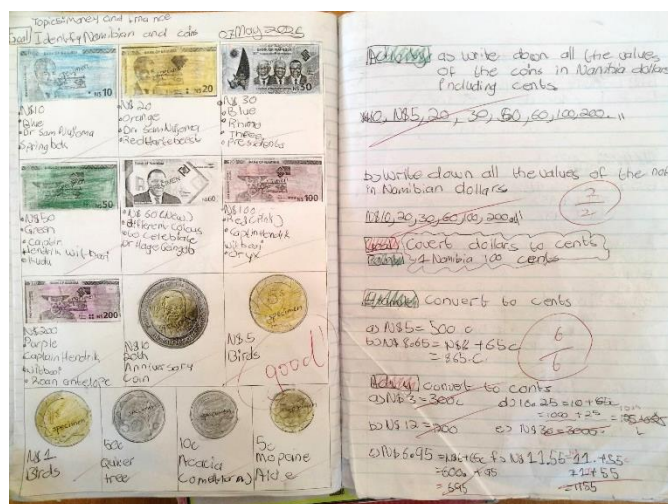 Topics: Money and finance
Goal Identify Namibian and coins 07 May 2025
N$10
Blue
Dr Sam Nujoma
Springbok
N$ 20
Orange
Dr. Sam Nujoma
Red Hartebeest
N$ 30
Blue
Three
Presidents
N$50
Green
Captin
Hendrik Witbooi
Kudu
N$ 60 (New)
different colour
to celebrate
Dr Hage Geingob
N$100
Red (Pink)
Captin Hendrik
Witbooi
Oryx
N$200
Purple
Captain Hendrik
Witbooi
Roan antelope
N$10
20th
Anniversary
Coin
N$.5
Birds
good!
N$ 1
Birds
50c
Quiver
tree
10c
Acacia
5c
Mopane
Activity a) Write down all the values
of the coins in Namibia dollars
Including cents
b) Write down all the values of the not
in Namibian dollars
N$10, 20, 30, 60, 100, 200.
2/2
Goal Covert dollars to cents
1 Namibia 100 cents
Activity Convert to cents
a) N$5 = 500 c
b) N$ 8.65 = N$8 + 65c
= 865.C.
6/6
Activity Convert to cents
a) N$3 = 300c
b) N$ 12 = 200
c) N$6.95 = N$6 + 95c
= 600. + 95
= 695
d) 10. 25 = 10 + 25c
= 1000 + 25
e) N$30 = 3000